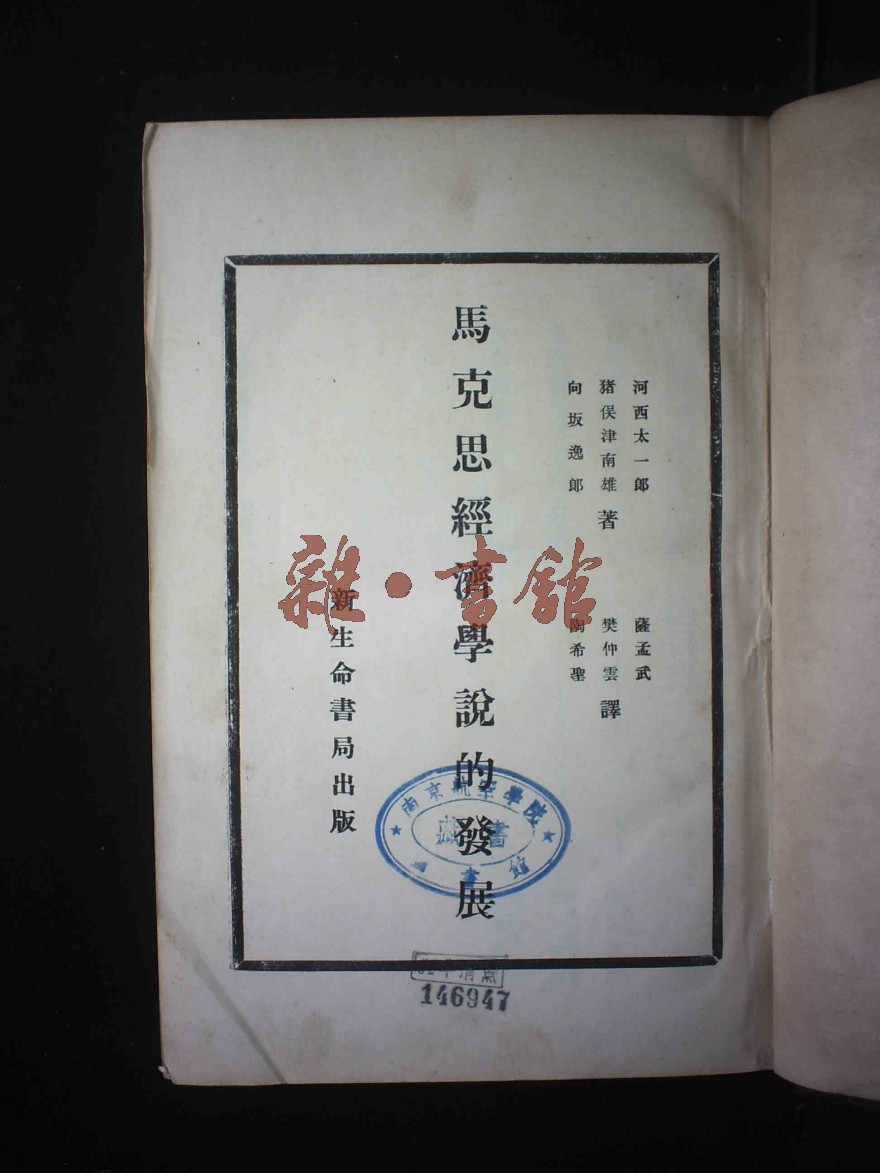 河西太一郎
猪俁津南雄 著
向坂逸郎
薩孟武
樊仲雲 譯
陶希聖
馬克思經濟學說的發展
新生命書局出版
雜·書館
南京航空學院
藏書
圖書館
146947